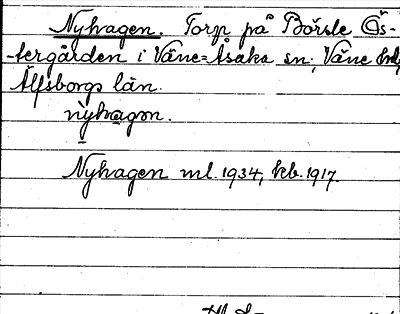 Nyhagen. Torp på Börsle Ös-
-tergården i Väne=Åsaka sn; Väne hd,
Älfsborgs län.
nỳhagɐn.
Nyhagen ml. 1934, kb. 1917.